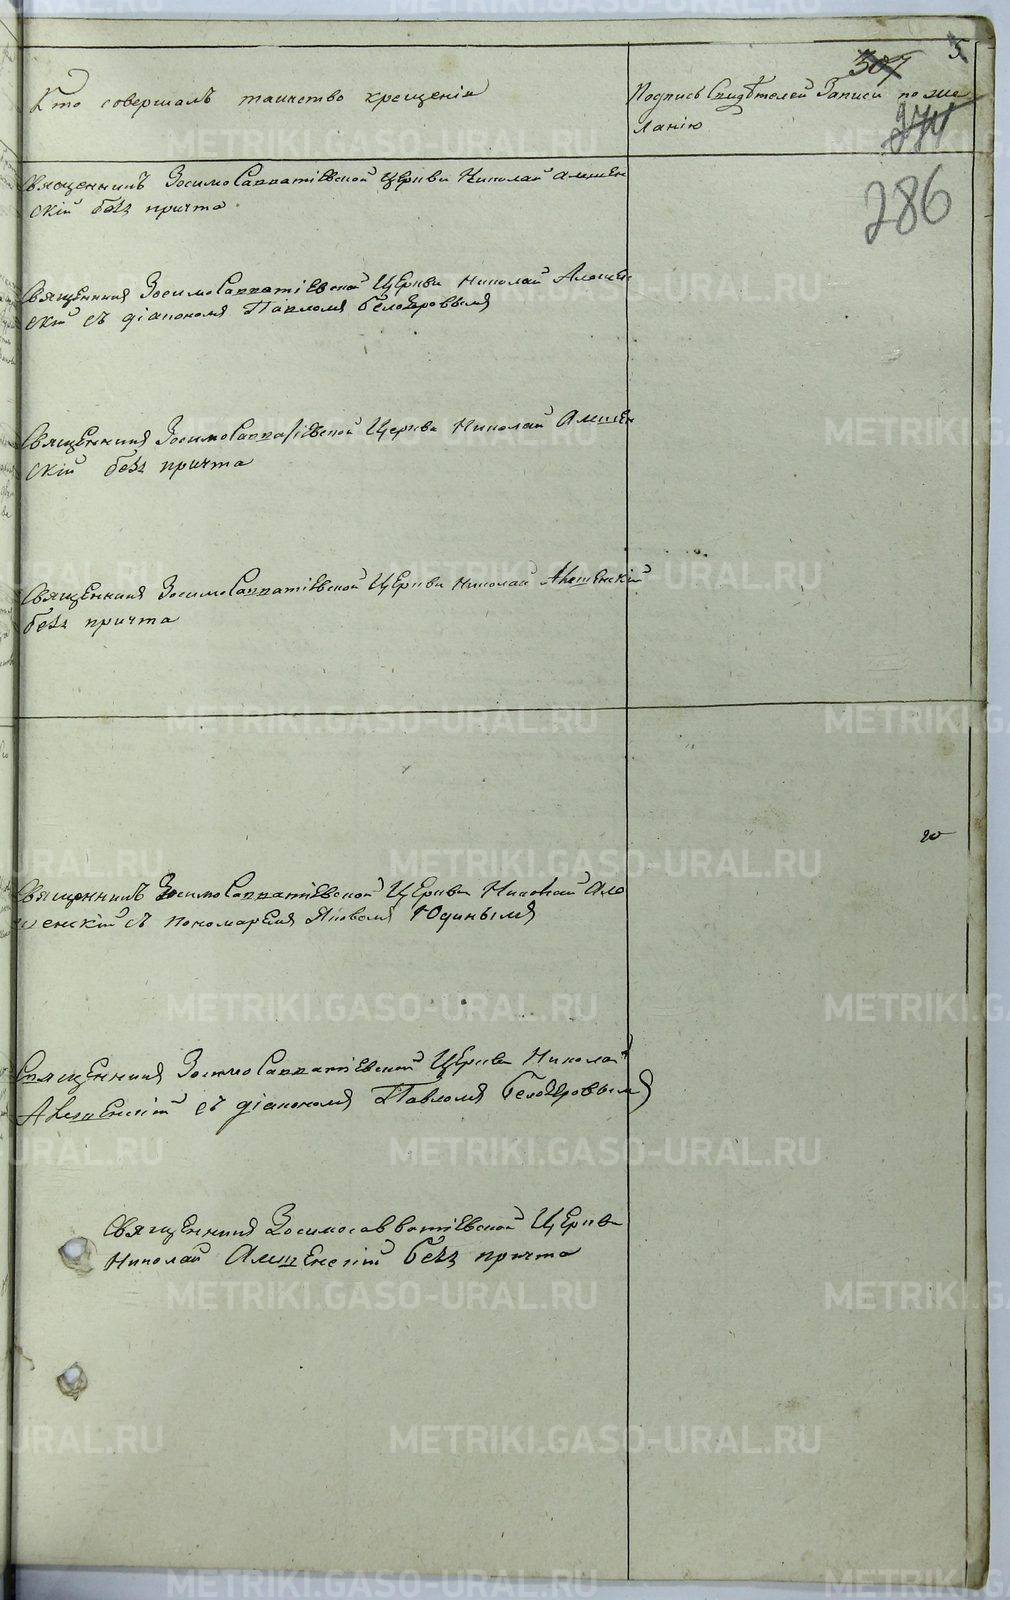 5
307
274
286
Кто совершалъ таинство крещенія
Подпись Свидѣтелей Записи по же
ланію
Священникъ Зосимо Савватіевской Церкви Николай Алешен
скій безъ причта
Священникъ Зосимо Савватіевской Церкви Николай Алешен
скій съ діакономъ Павломъ Белозеровымъ
Священникъ Зосимо Савватіевской Церкви Николай Алешен
скій безъ причта
Священникъ Зосимо Савватіевской Церкви Николай Алешенскій
безъ причта
Священникъ Зосимо Савватіевской Церкви Николай Але
шенскій съ пономаремъ Яковомъ Юдинымъ
Священникъ Зосимо Савватіевской Церкви Николай
Алешенскій съ діакономъ Павломъ Белозеровымъ
Священникъ Зосимосавватіевской Церкви
Николай Алешенскій безъ причта
METRIKI.GASO-URAL.RU